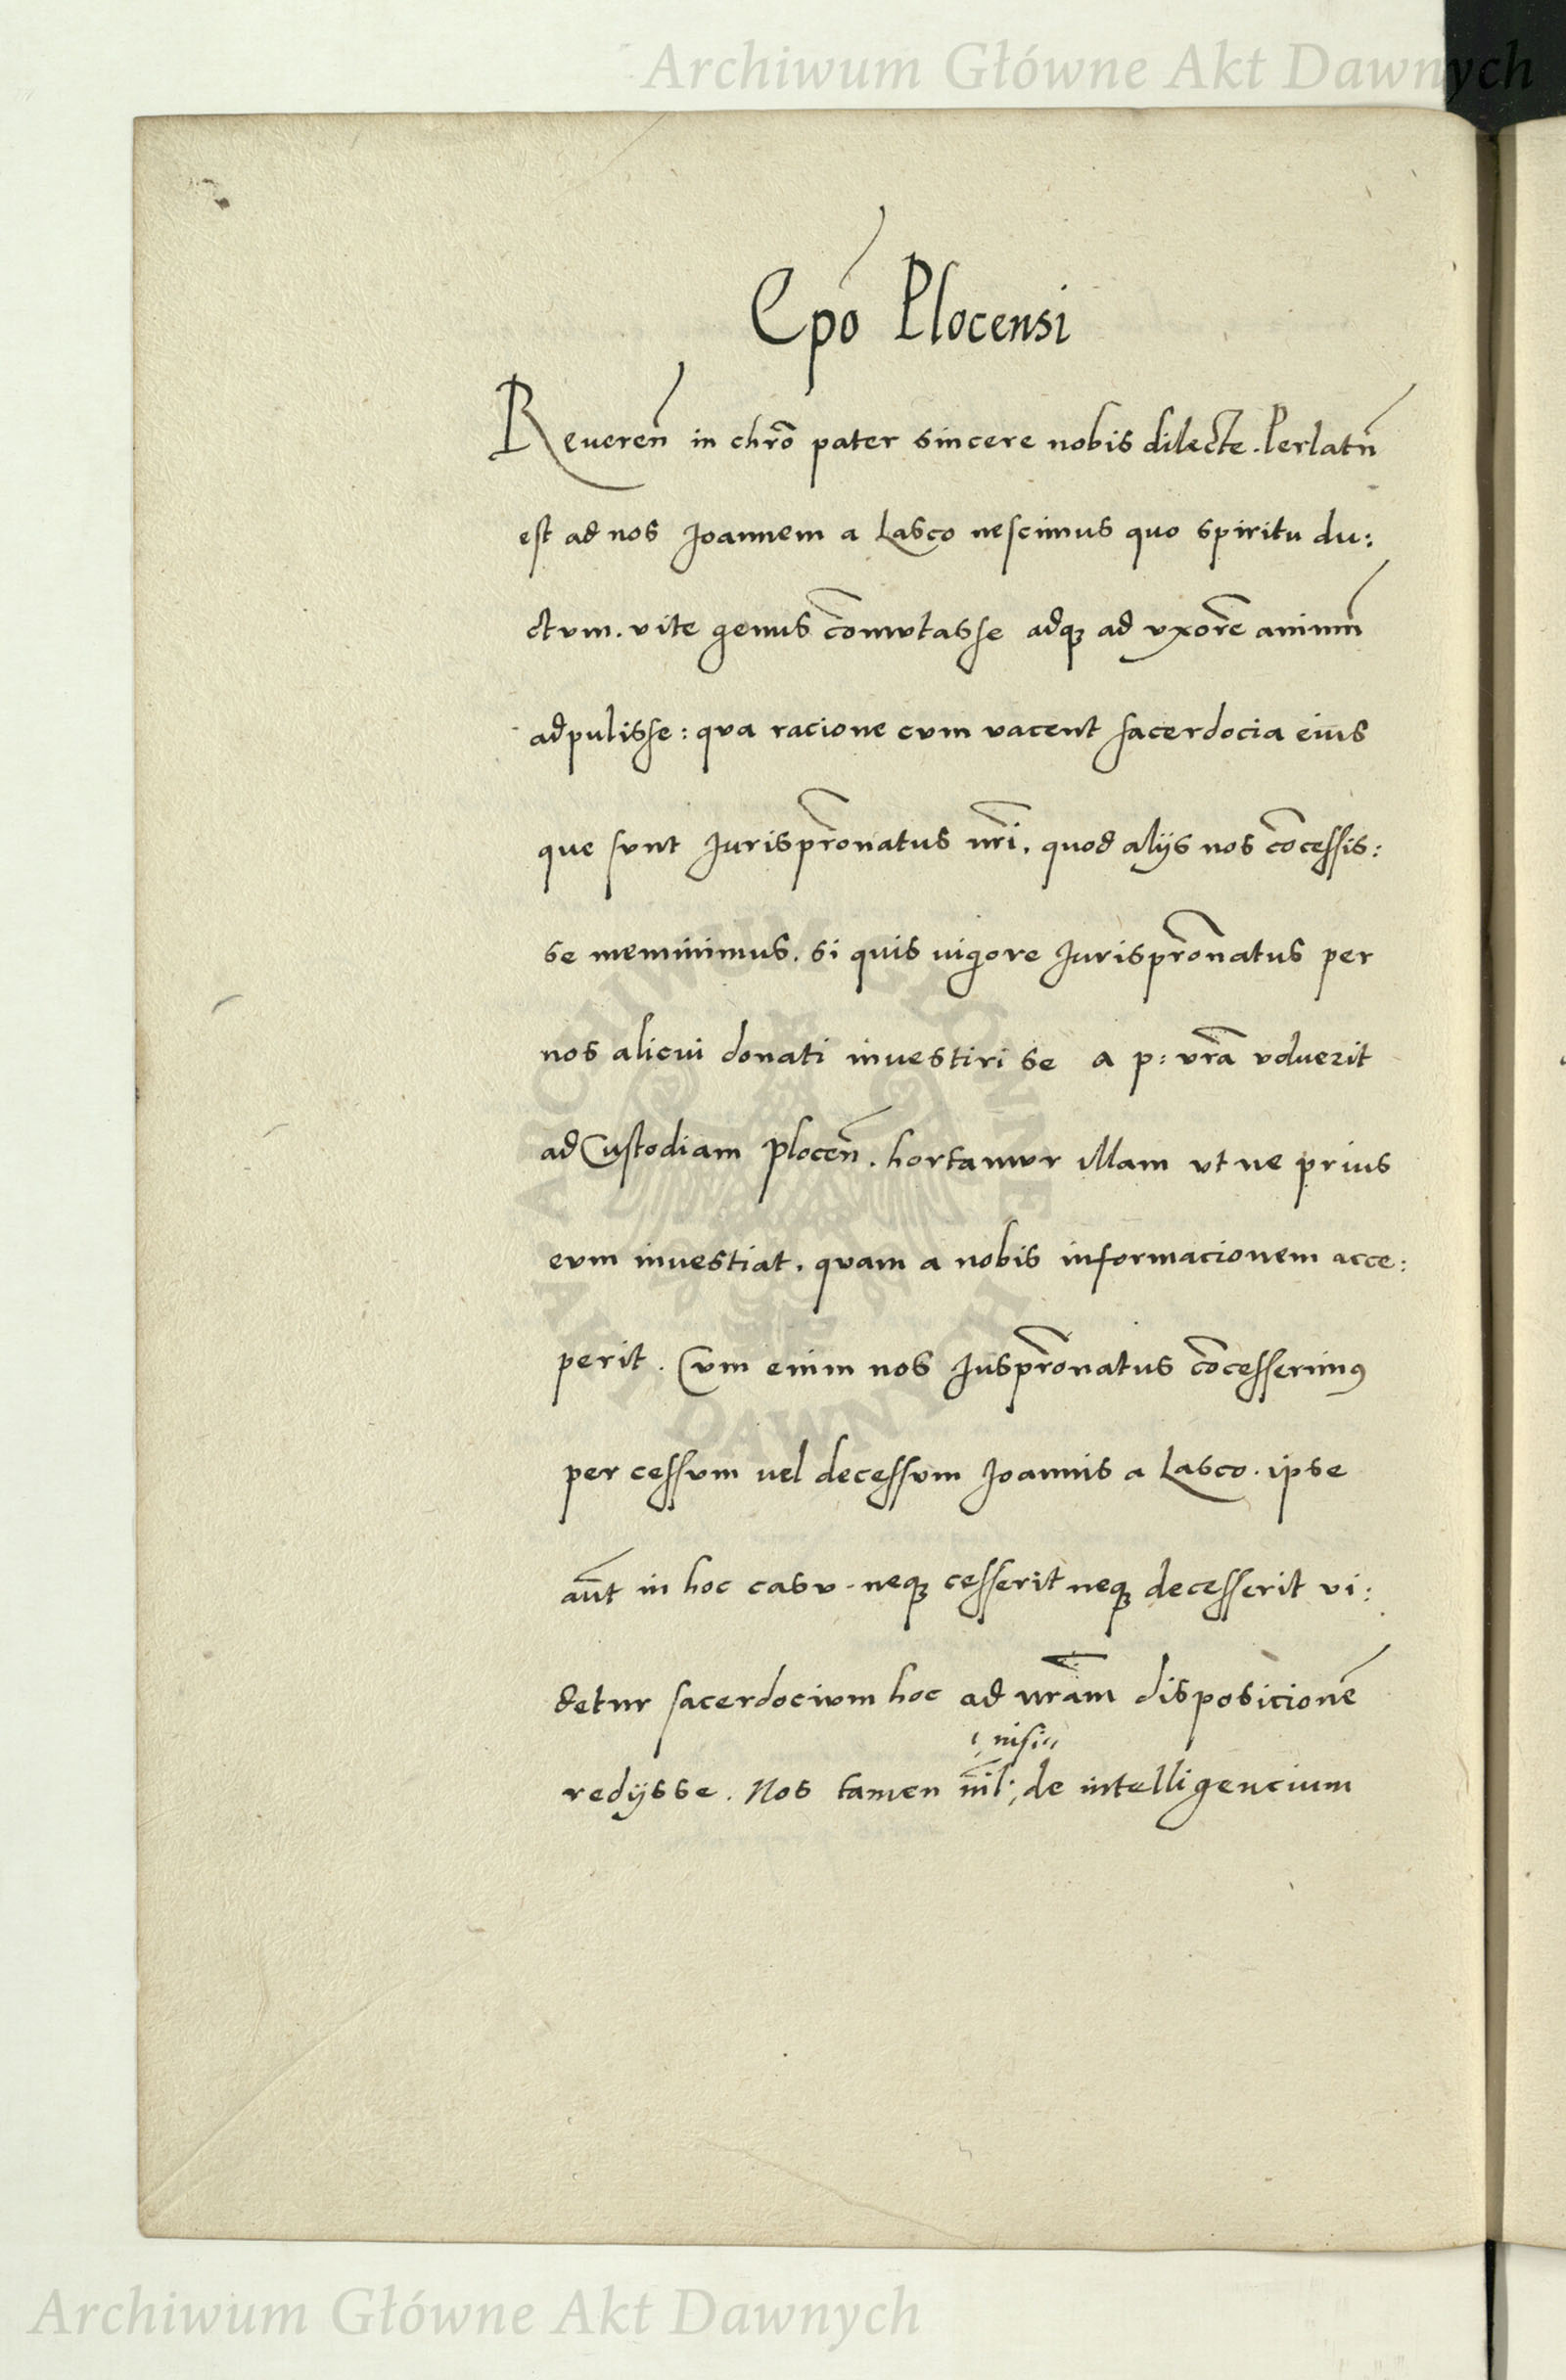 Archiwum Główne Akt Dawnych
Epō Plocensi
Reueren̄ in chrō pater sincere nobis dilecte. Perlatn̄
est ad nos Joannem a Lasco nescimus quo spiritu du:
ctvm. vite genus com̄vtasse adqȝ ad vxorē animm̄
adpulisse: qva racione cvm vacent sacerdocia eius
que svnt Jurispr̄onatus nr̄i. quod alijs nos cōcessis:
se meminimus. si quis uigore Jurispr̄onatus per
nos alicui donati investiri se a p: vr̄a voluerit
ad Custodiam plocen̄. hortamvr illam vt ne prius
evm investiat. qvam a nobis informacionem acce:
perit. Cvm enim nos Juspr̄onatus cōcesserimꝰ
per cessvm uel decessvm Joannis a Lasco. ipse
aūt in hoc casv. neqȝ cesserit neqȝ decesserit vi:
detur sacerdocivm hoc ad vr̄am disposicionē
nisi
redijsse. Nos tamen nīl; de intelligencium
ARCHIWUM GŁÓWNE
AKT DAWNYCH
Archiwum Główne Akt Dawnych